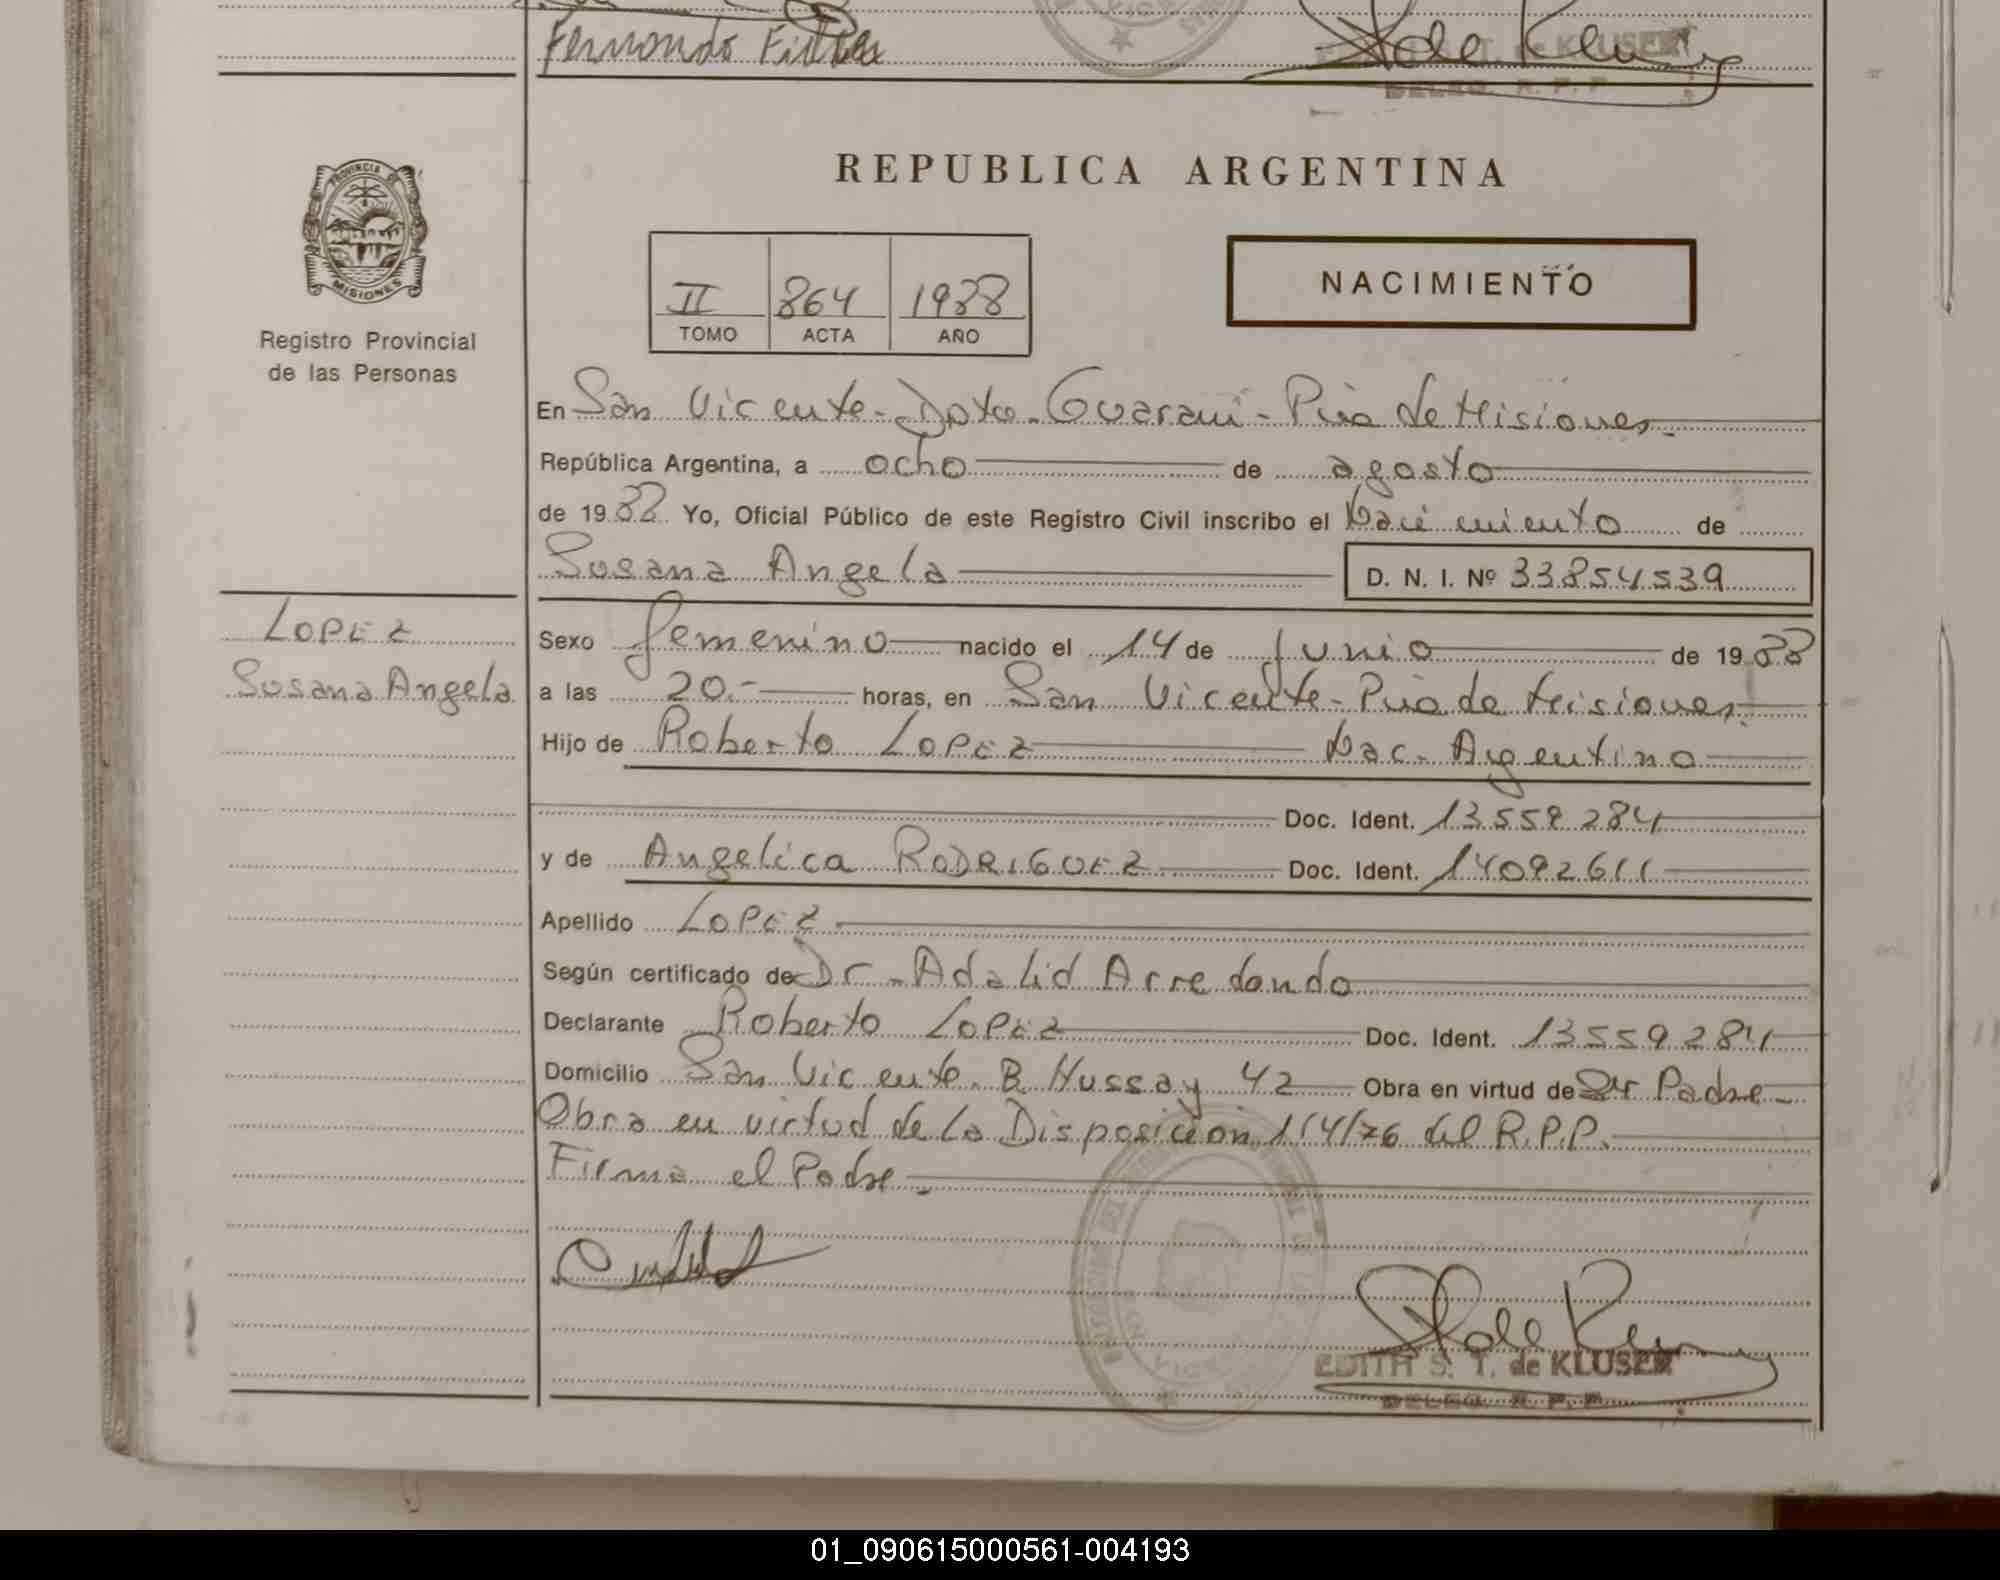 Fernando
EDITH S. T. de KLUSER
DELEG. R. P. P.
PROVINCIA DE
MISIONES
Registro Provincial
de las Personas
REPUBLICA ARGENTINA
II 864 1988
TOMO ACTA AÑO
NACIMIENTO
En San Vicente - Dpto. Guarani - Pcia de Misiones.
República Argentina, a ocho de agosto
de 1988 Yo, Oficial Público de este Registro Civil inscribo el Nacimiento de
Susana Angela D. N. I. Nº 33854539
LOPEZ
Susana Angela
Sexo femenino nacido el 14 de Junio de 1988
a las 20.- horas, en San Vicente - Pcia de Misiones.
Hijo de Roberto LOPEZ Nac. Argentino
Doc. Ident. 13559284
y de Angelica RODRIGUEZ Doc. Ident. 14092611
Apellido LOPEZ
Según certificado de Dr. Adalid Arredondo
Declarante Roberto LOPEZ Doc. Ident. 13559284
Domicilio San Vicente. B. Hussay 42 Obra en virtud de Ser Padre -
Obra en virtud de la Disposicion 114/76 del R.P.P.
Firma el Padre -
EDITH S. T. de KLUSER
DELEG. R. P. P.
01_090615000561-004193